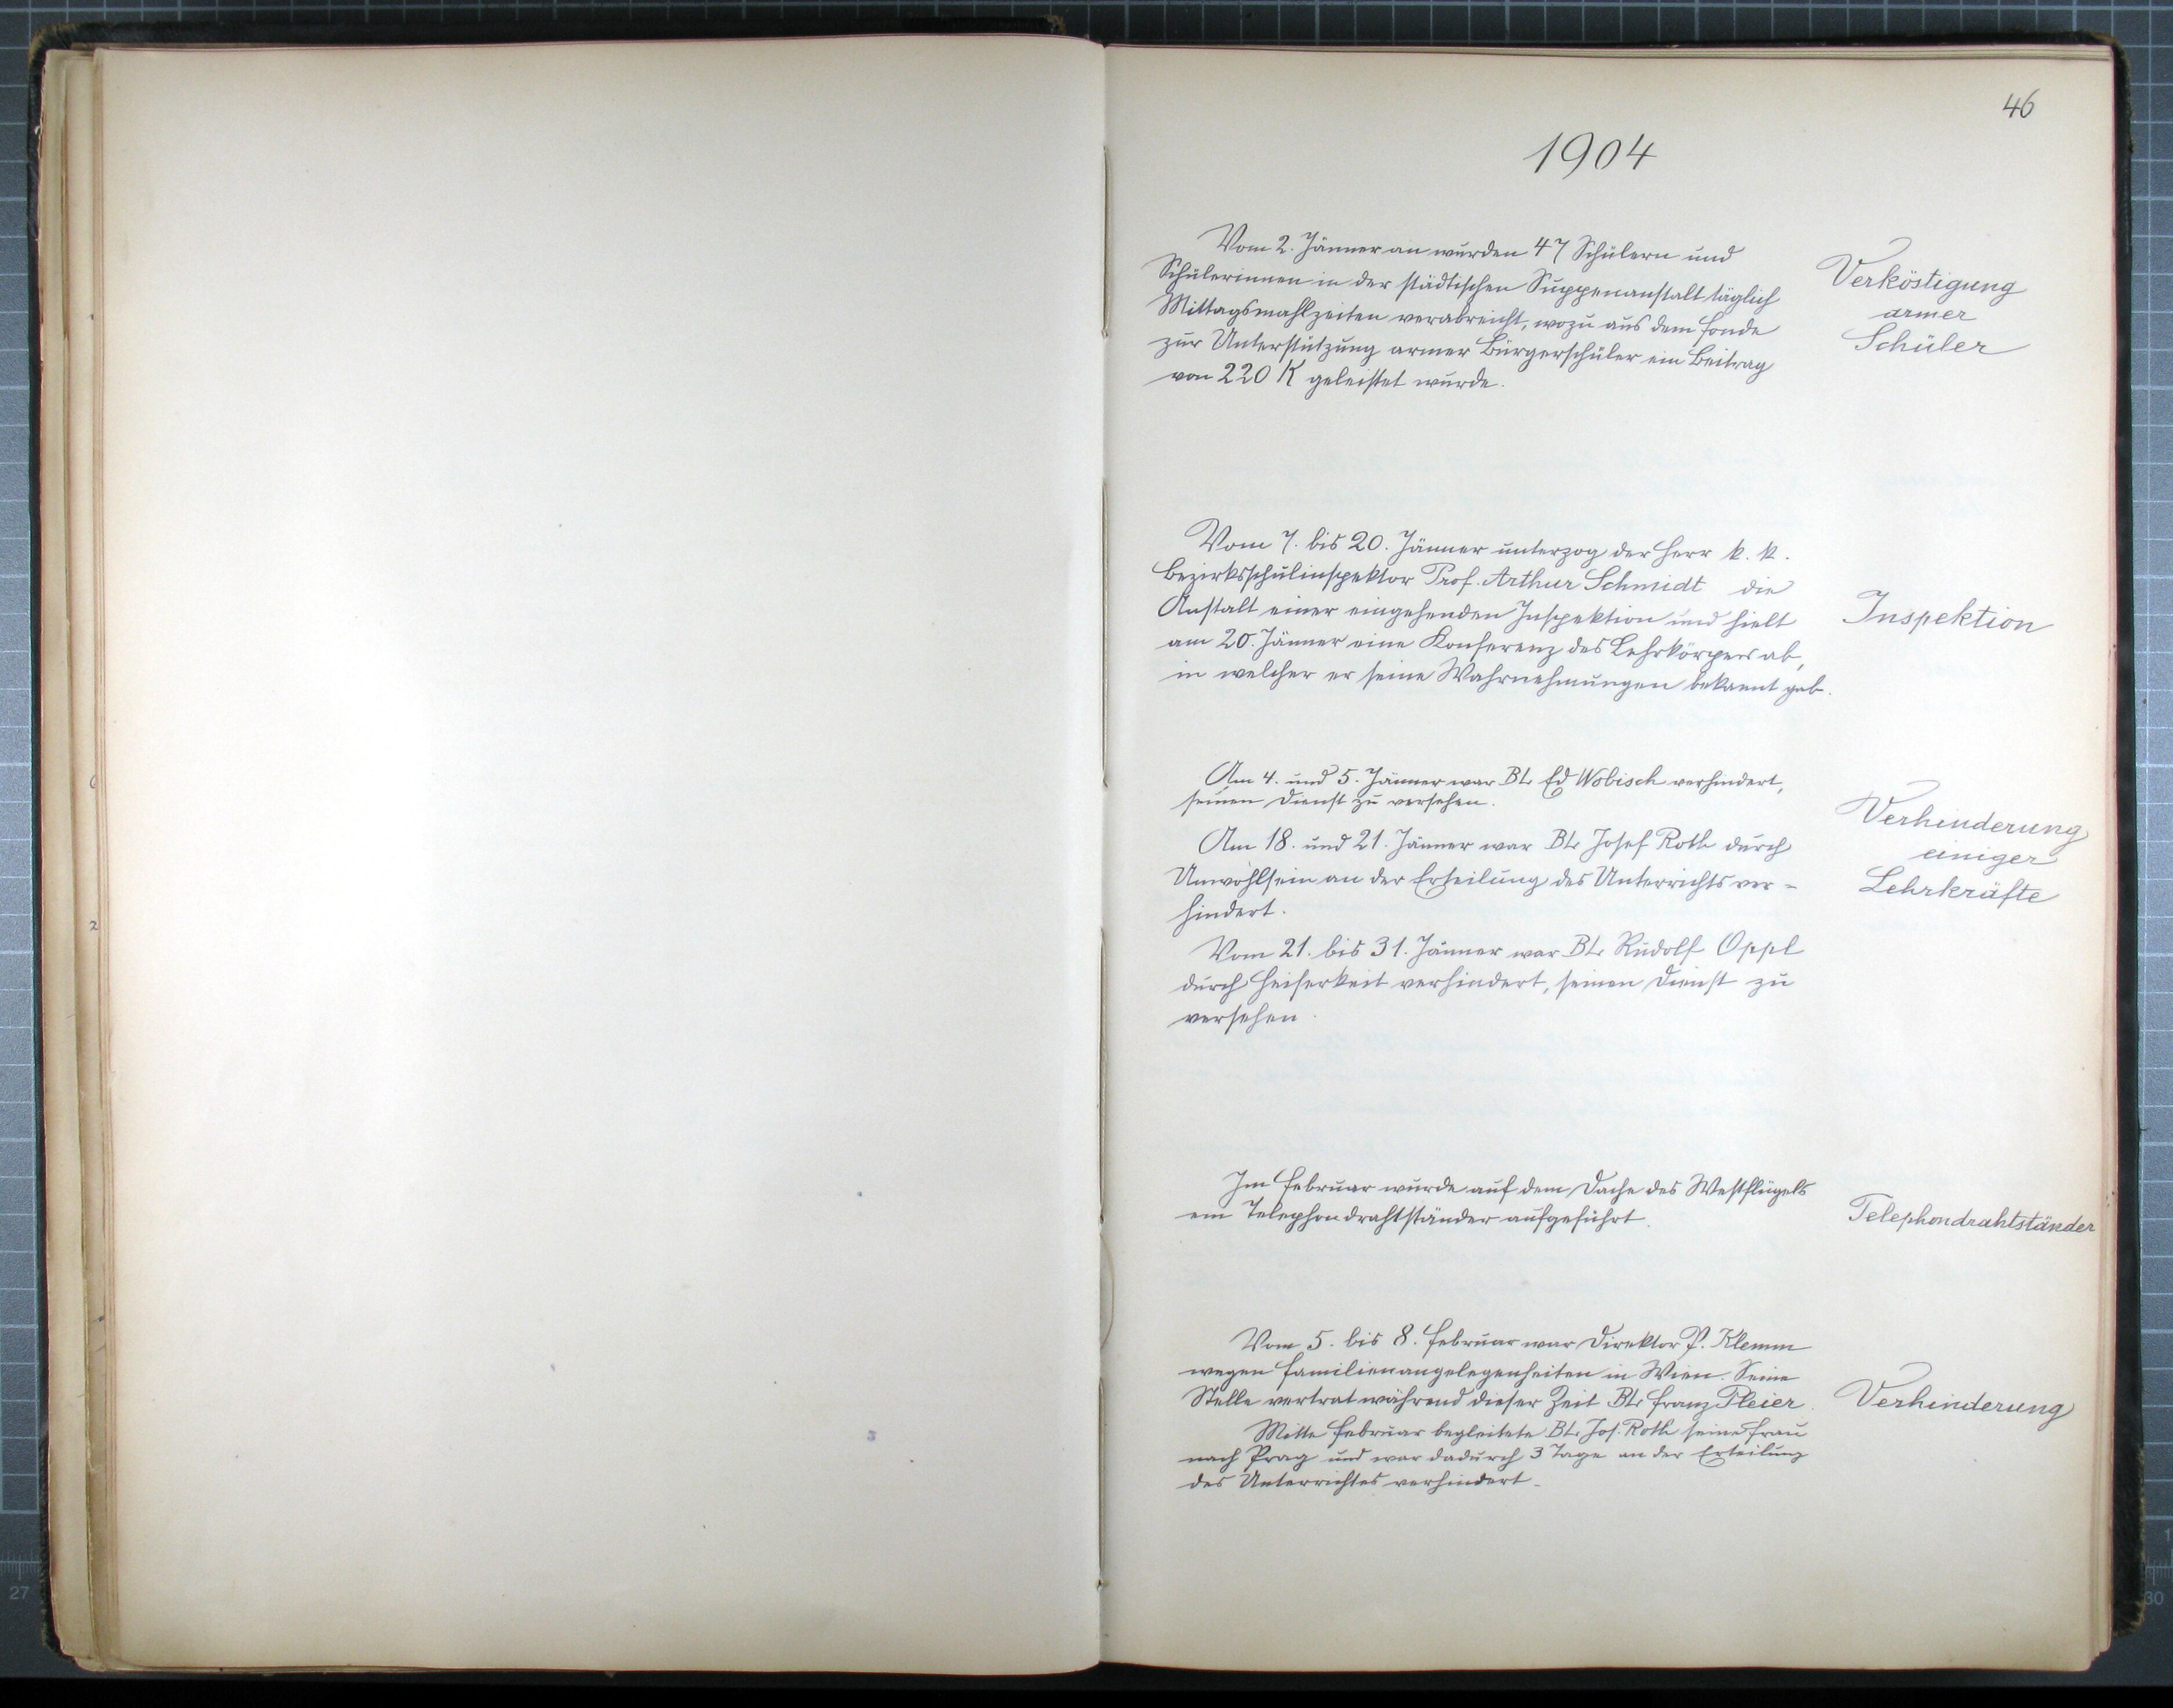 46
1904
Vom 2. Jänner an wurden 47 Schülern und
Schülerinnen in der städtischen Suppenanstalt täglich
Mittagsmahlzeiten verabreicht, wozu aus dem Fonde
zur Unterstützung armer Bürgerschüler ein Beitrag
von 220 K geleistet wurde.
Verköstigung
armer
Schüler
Vom 7. bis 20. Jänner unterzog der Herr k. k.
Bezirksschulinspektor Prof. Arthur Schmidt die
Anstalt einer eingehenden Inspektion und hielt
am 20. Jänner eine Konferenz des Lehrkörpers ab,
in welcher er seine Wahrnehmungen bekannt gab.
Inspektion
Am 4. und 5. Jänner war BL Ed Wobisch verhindert,
seinen Dienst zu versehen.
Am 18. und 21. Jänner war BL Josef Roth durch
Unwohlsein an der Erteilung des Unterrichts ver-
hindert.
Vom 21. bis 31. Jänner war BL Rudolf Oppl
durch Heiserkeit verhindert, seinen Dienst zu
versehen.
Verhinderung
einiger
Lehrkräfte
Im Februar wurde auf dem Dache des Westflügels
ein Telephondrahtständer aufgeführt.
Telephondrahtständer
Vom 5. bis 8. Februar war Direktor P. Klemm
wegen Familienangelegenheiten in Wien. Seine
Stelle vertrat während dieser Zeit BL Franz Pleier.
Mitte Februar begleitete BL Jos. Roth seine Frau
nach Prag und war dadurch 3 Tage an der Erteilung
des Unterrichtes verhindert.
Verhinderung
27
30